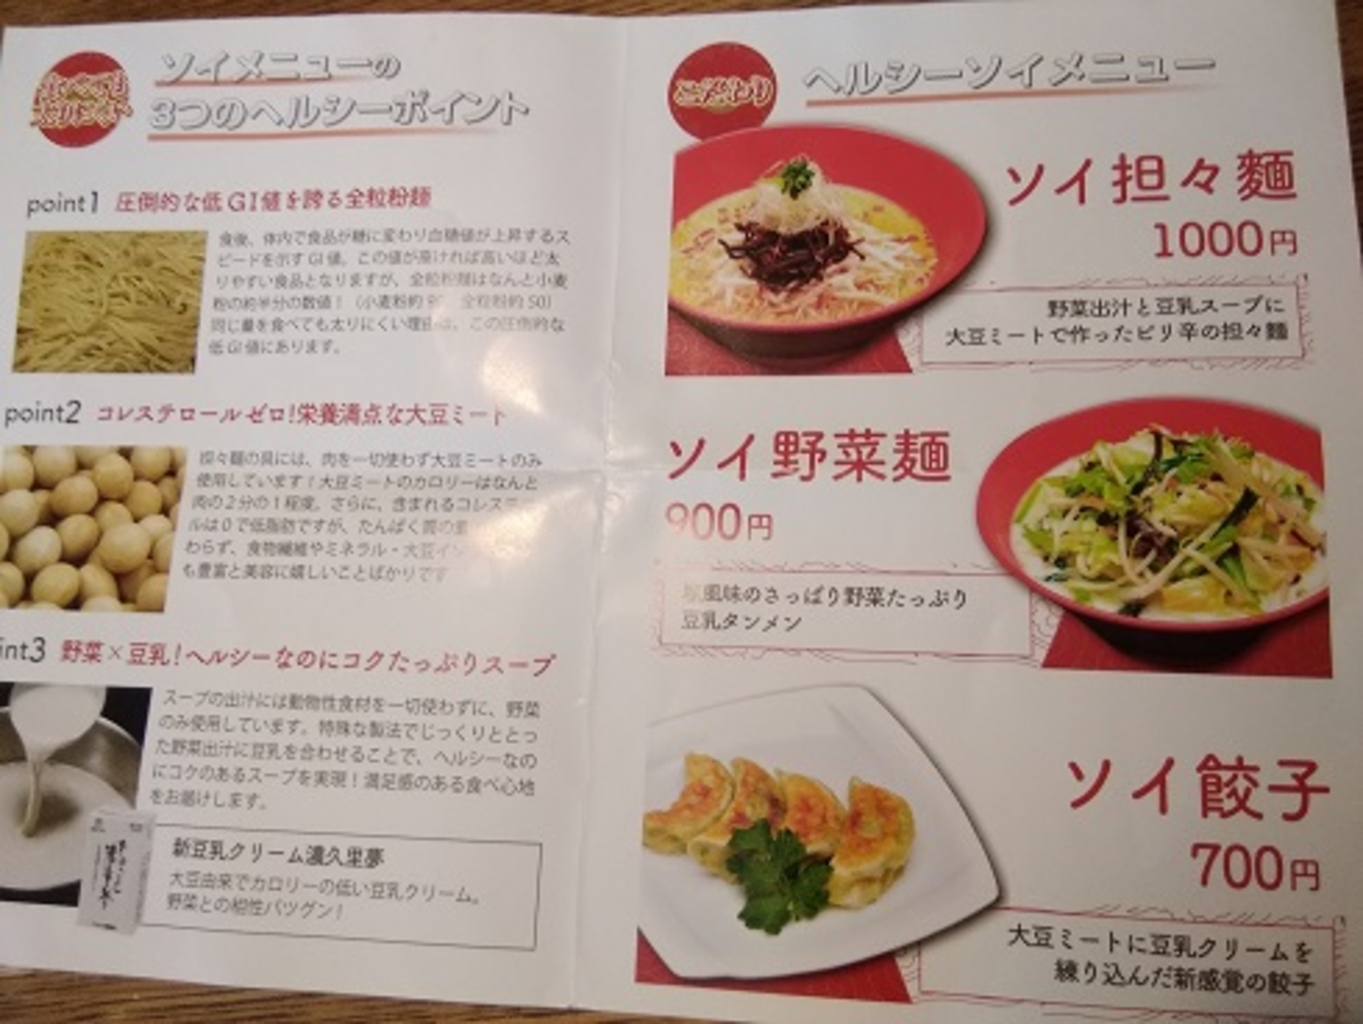 食べても
太りにくい
ソイメニューの
3つのヘルシーポイント
point1 圧倒的な低GI値を誇る全粒粉麺
食後、体内で食品が糖に変わり血糖値が上昇するス
ピードを示すGI値。この値が高ければ高いほど太
りやすい食品となりますが、全粒粉麺はなんと小麦
粉の約半分の数値！（小麦粉約 全粒粉約50）
同じ量を食べても太りにくい理由は、この圧倒的な
低GI値にあります。
point2 コレステロールゼロ!栄養満点な大豆ミート
担々麺の具には、肉を一切使わず大豆ミートのみ
使用しています！大豆ミートのカロリーはなんと
肉の2分の1程度。さらに、含まれるコレステ
ルは0で低脂肪ですが、たんぱく質の量
わらず、食物繊維やミネラル・大豆イソ
も豊富と美容に嬉しいことばかりです
int3 野菜×豆乳！ヘルシーなのにコクたっぷりスープ
スープの出汁には動物性食材を一切使わずに、野菜
のみ使用しています。特殊な製法でじっくりととっ
た野菜出汁に豆乳を合わせることで、ヘルシーなの
にコクのあるスープを実現！満足感のある食べ心地
をお届けします。
新豆乳クリーム濃久里夢
大豆由来でカロリーの低い豆乳クリーム。
野菜との相性バツグン！
こだわり
ヘルシーソイメニュー
ソイ担々麺
1000円
野菜出汁と豆乳スープに
大豆ミートで作ったピリ辛の担々麺
ソイ野菜麺
900円
風味のさっぱり野菜たっぷり
豆乳タンメン
ソイ餃子
700円
大豆ミートに豆乳クリームを
練り込んだ新感覚の餃子